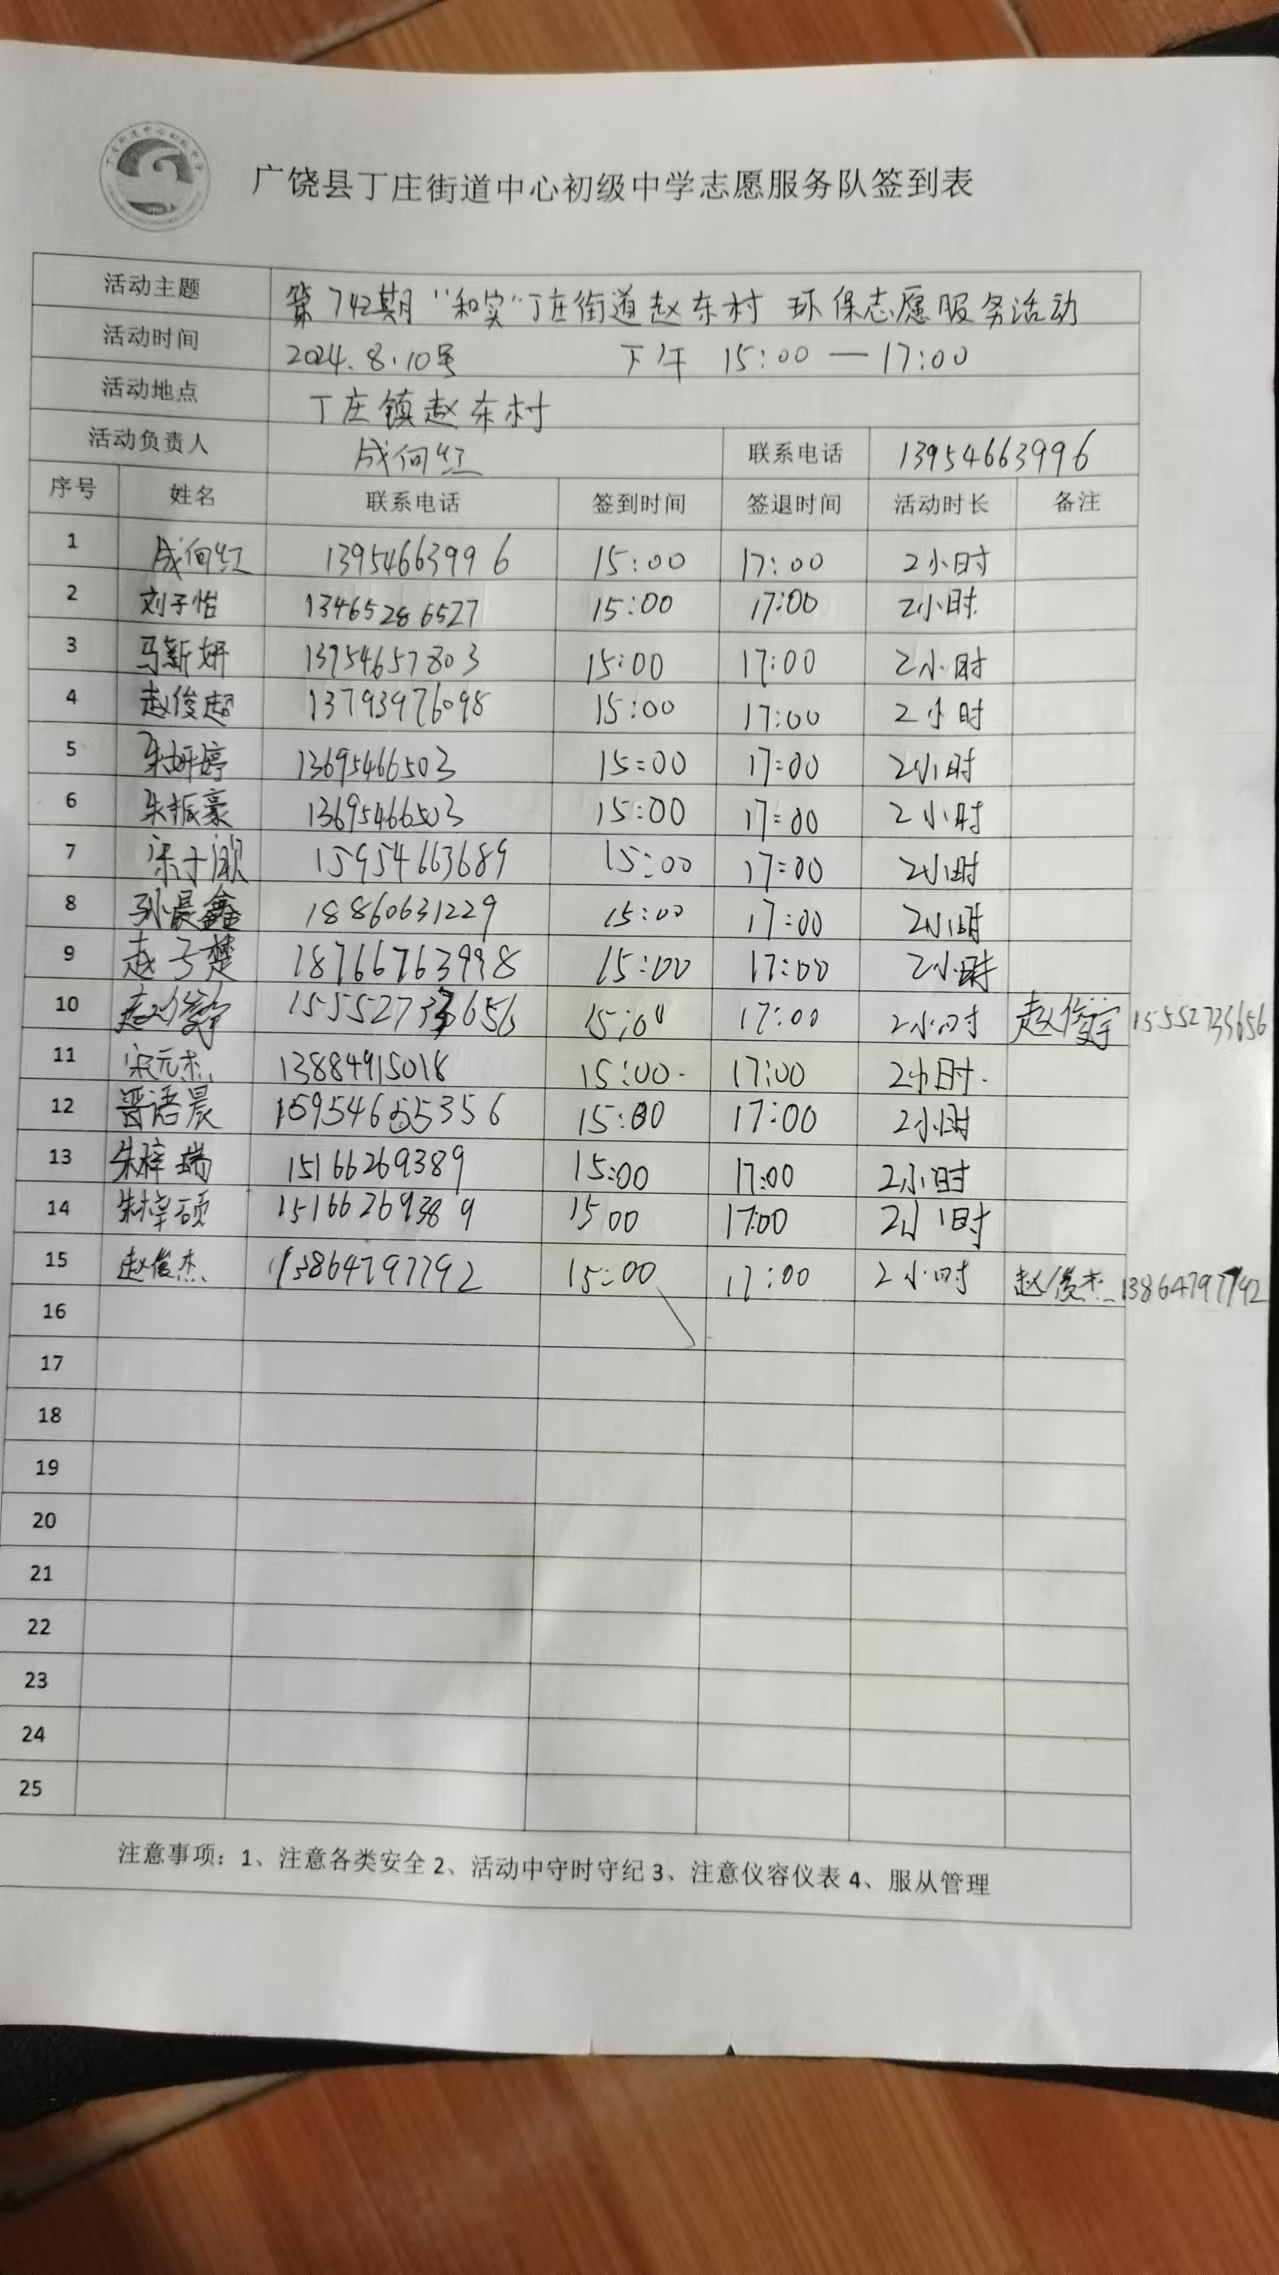 广饶县丁庄街道中心初级中学志愿服务队签到表
活动主题 第742期“和实”丁庄街道赵东村 环保志愿服务活动
活动时间 2024.8.10号 下午 15:00—17:00
活动地点 丁庄镇赵东村
活动负责人 成向红 联系电话 13954663996
序号 姓名 联系电话 签到时间 签退时间 活动时长 备注
1 成向红 13954663996 15:00 17:00 2小时
2 刘子怡 13465286527 15:00 17:00 2小时
3 马新妍 13954657803 15:00 17:00 2小时
4 赵俊超 13793976098 15:00 17:00 2小时
5 朱妍婷 13695466503 15:00 17:00 2小时
6 朱振豪 13695466503 15:00 17:00 2小时
7 15954663689 15:00 17:00 2小时
8 孙晨鑫 18860631229 15:00 17:00 2小时
9 赵子楚 18766763998 15:00 17:00 2小时
10 赵俊宇 15552733656 15:00 17:00 2小时 赵俊宇 15552733656
11 宋元杰 13884915018 15:00 17:00 2小时
12 晋语晨 15954655356 15:00 17:00 2小时
13 朱梓瑞 15166269389 15:00 17:00 2小时
14 15166269389 15 00 17:00 2小时
15 赵俊杰 13864797792 15:00 17:00 2小时 赵俊杰 13864797792
16
17
18
19
20
21
22
23
24
25
注意事项：1、注意各类安全 2、活动中守时守纪 3、注意仪容仪表 4、服从管理